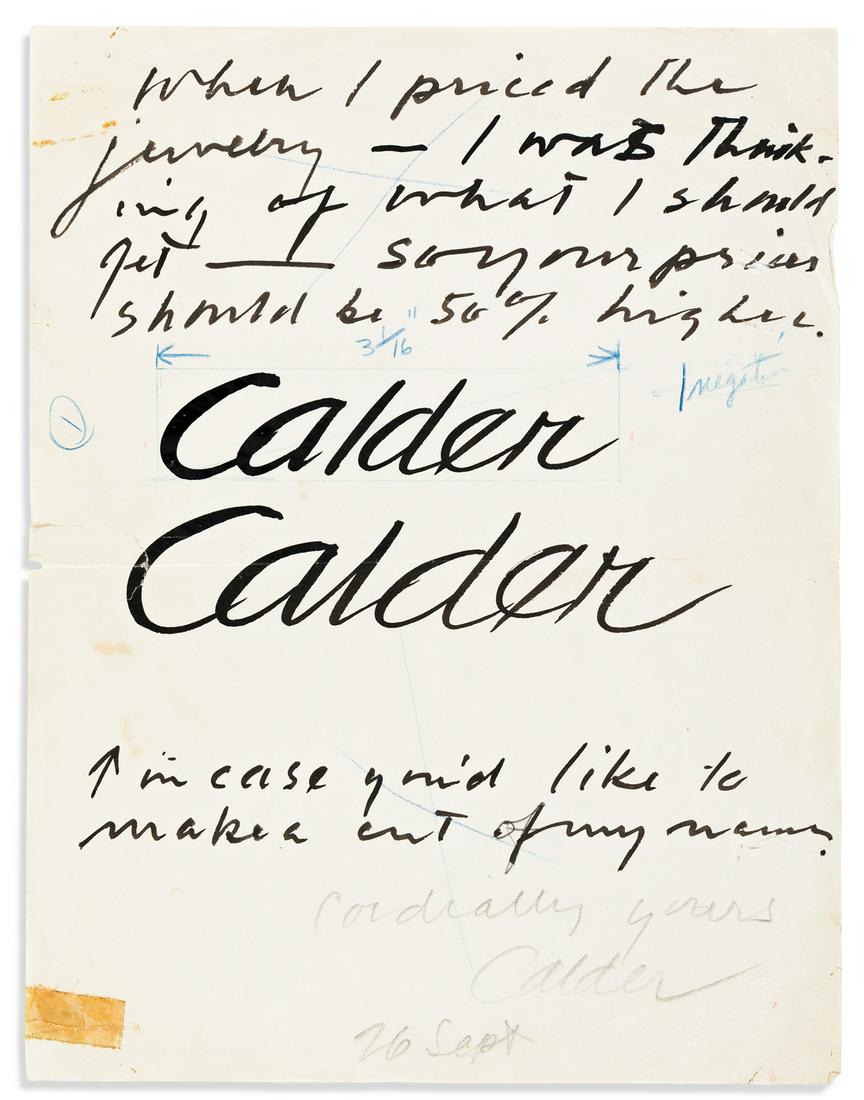 When I priced the
jewelry — I was think-
ing of what I should
get — so your prices
should be 50% higher.
3 1/16"
negative
1
Calder
Calder
↑ in case you'd like to
make a cut of my name.
Cordially yours
Calder
26 Sept